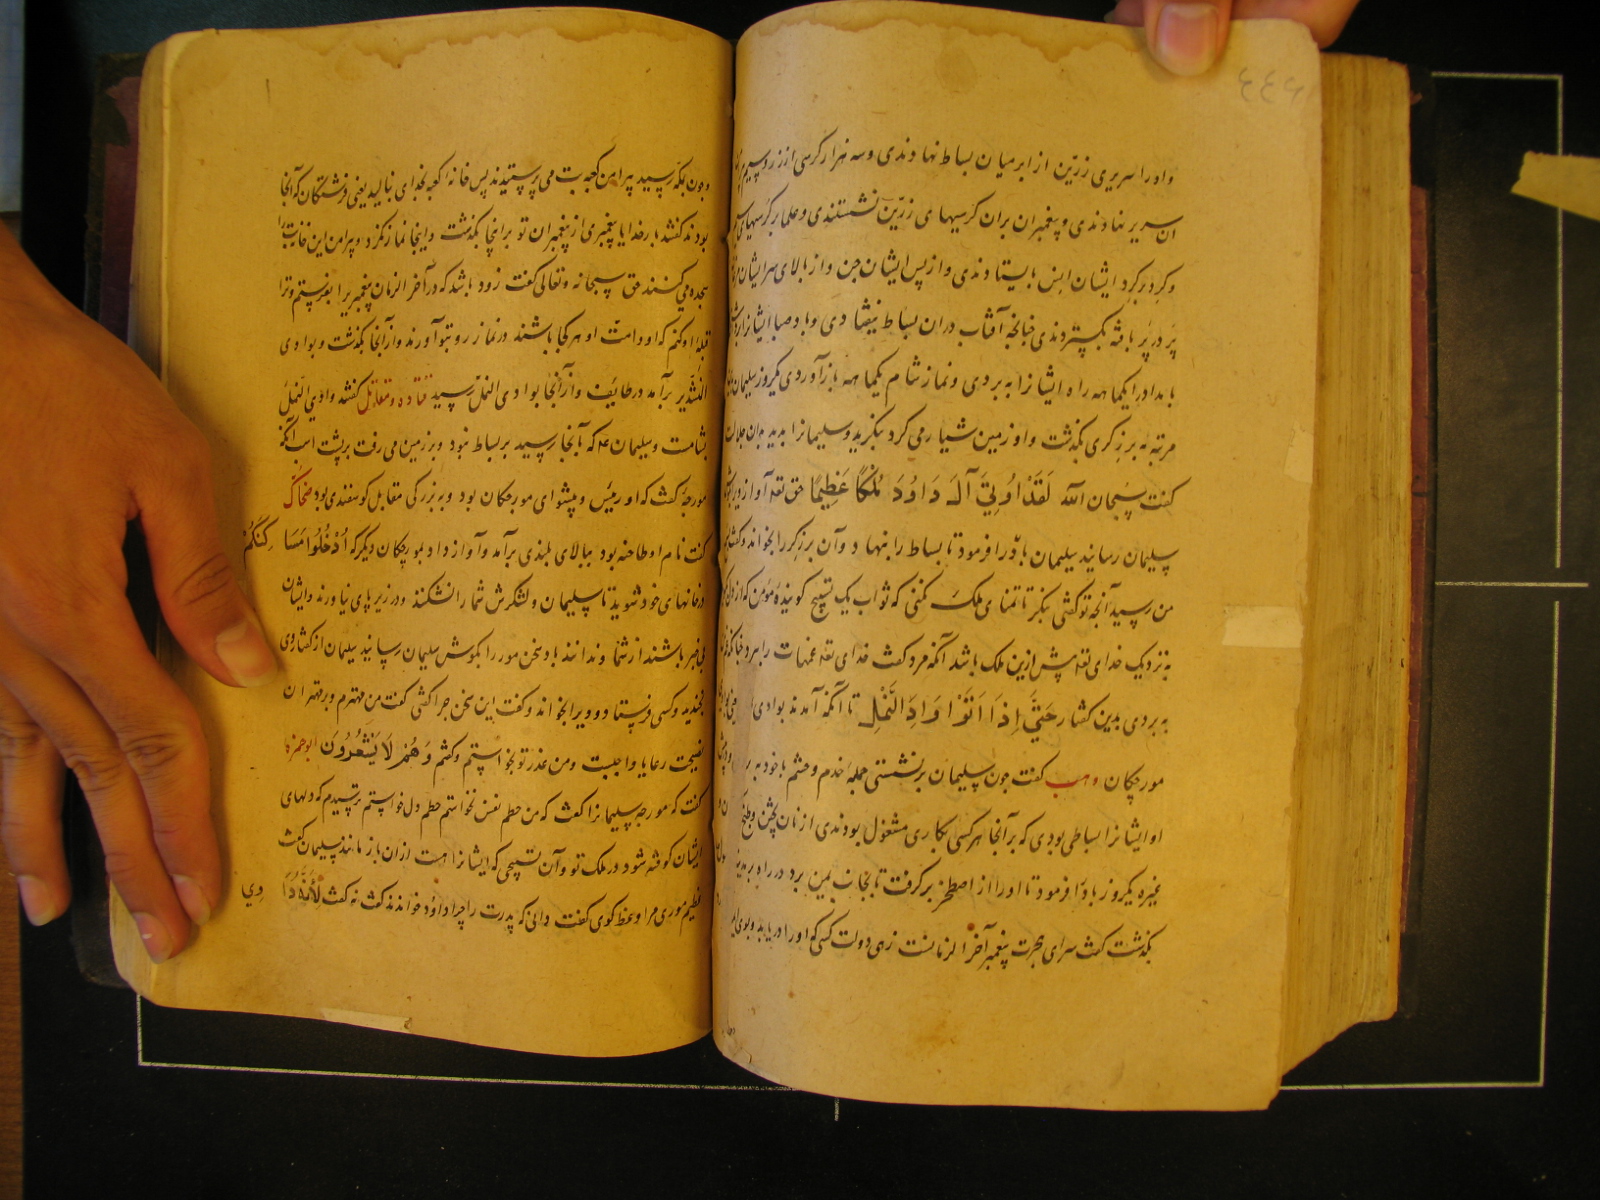 ۶۶۶
و او را سریری زرین از ابر میان بساط نهادندی و سه هزار کرسی از زر و سیم
ان سریر نهادندی و پیغمبران بران کرسیهای زرین نشستندی و علما بر کرسیهای سیم
و کرد برکرد ایشان انس بایستادندی و از پس ایشان جن و از بالای سر ایشان مرغان
پر در پر بافته بکستردندی چنانچه آفتاب دران بساط نیفتادی و باد صبا ایشانرا برداشتی
بامداد را یکماهه راه ایشانرا به بردی و نماز شام یکماهه باز آوردی یکروز سلیمان
مرتبه به برزکری بکذشت و او زمین شیار می کرد بنکرید و سلیمانرا بدید بدان جلال
کفت سبحان الله لَقَدْ اُوتِیَ آلَ دَاوُدَ مُلْکًا عَظِیمًا حق تعه آواز ویرا بکوش
سلیمان رسانید سلیمان باد را فرمود تا بساط را بنهاد و آن برزکر را بخواند و کفت
من رسید آنچه تو کفتی بنکر تا تمنای ملک نکنی که ثواب یک تسبیح کوینده مؤمن که از دل
به نزدیک خدای تعه پیش ازین ملک باشد آنکه مرد کفت خدای تعه غمهات را ببرد چنانکه
به بردی بدین کفتار حَتَّی اِذَا اَتَوْا وَادِ النَّمْلِ تا آنکه آمدند بوادی
مورچکان وهب کفت چون سلیمان بر نشستی جمله خدم و حشم با خود
او ایشانرا بساطی بودی که بر آنجا هرکسی بکاری مشغول بودندی از نان پختن و طبخ
غیره یکروز باد را فرمود تا او را از اصطخر برکرفت تا بجانب یمن برد در راه بمدینه
بکذشت کفت سرای هجرت پیغمبر آخر الزمانست زهی دولت کسی که او را دریابد و بوی
و چون بمکه رسید پیرامن کعبه بت می پرستیدند پس خانه کعبه بخدای بنالید یعنی فرشتکان که آنجا
بودند کفتند بار خدایا پیغمبری از پیغمبران تو برانجا بکذشت و اینجا نماز نکرد و پیرامن این خانه بت را
سجده می کنند حق سبحانه و تعالی کفت زود باشد که در آخر الزمان پیغمبری را بفرستم و ترا
قبله او کنم که او و امت او هر کجا باشند در نماز رو بتو آورند و از آنجا بکذشت و بوادی
السدیر برآمد در طایف و از آنجا بوادی النمل رسید قتاده و مقاتل کفتند وادی النمل
بشامست و سلیمان ع م که بآنجا رسید بر بساط نبود و بر زمین می رفت بر پشت اسب آنکه
مورچه کفت که او رئیس و پیشوای مورچکان بود و به بزرکی مقابل کوسفندی بود ضحاک
کفت نام او طاخنه بود ببالای بلندی برآمد و آواز داد بمورچکان دیکر که اُدْخُلُوا مَسَاکِنَکُمْ
در خانهای خود شوید تا سلیمان و لشکرش شما را نشکنند و در زیر پای نیاورند و ایشان
بی خبر باشند از شما و ندانند باد سخن مور را بکوش سلیمان رسانید سلیمان از کفتار وی
بخندید و کسی فرستاد و ویرا بخواند و کفت این سخن چرا کفتی کفت من مهترم و بر مهتران
نصیحت رعایا واجبست و من عذر تو بخواستم و کفتم وَ هُمْ لَا یَشْعُرُونَ ابو حمزه
کفت که مورچه سلیمانرا کفت که من حطم نفس نخواستم حطم دل خواستم ترسیدم که دلهای
ایشان کوفته شود در ملک تو و آن تسبیحی که ایشانراست از ان باز مانند سلیمان کفت
عظیم موری مرا وعظ کوی کفت دانی که پدرت را چرا داود خواندند کفت نه کفت لأنه دا وی